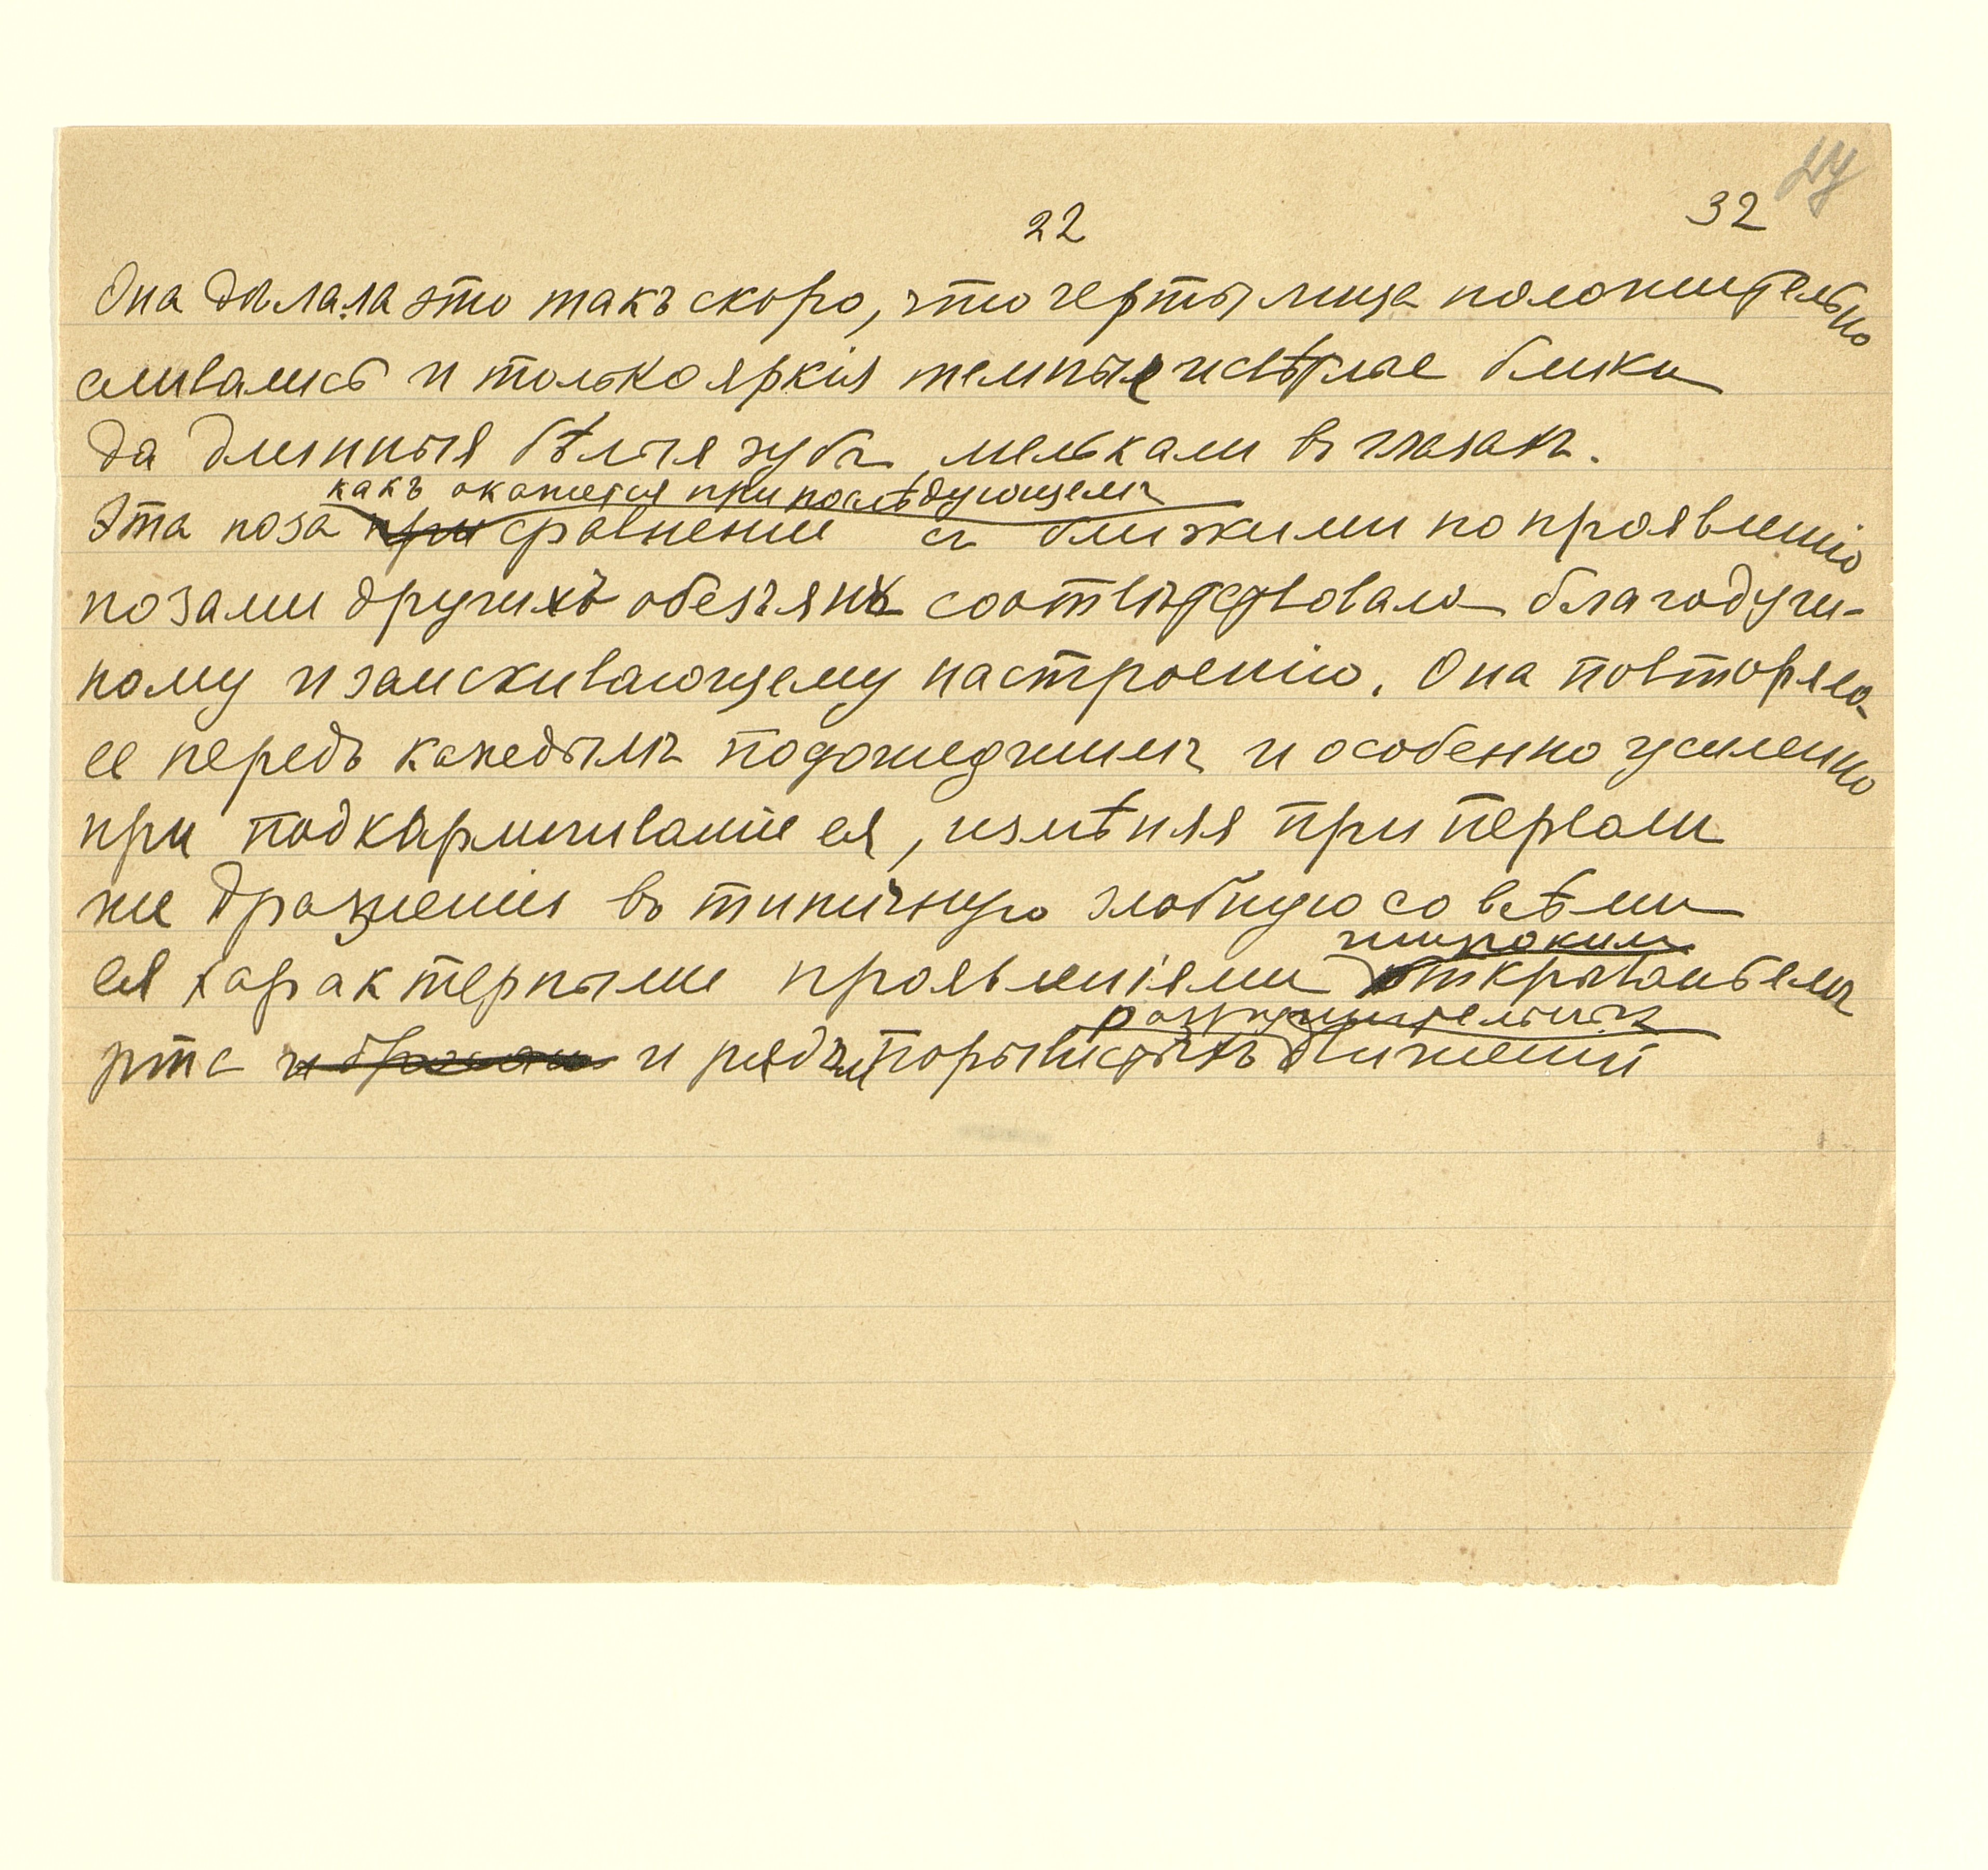 22
32
Она дѣлала это такъ скоро, что черты лица положительно
сливались и только яркія темные и свѣтлые блики
да длинныя бѣлыя зубы мелькали въ глазахъ.
какъ окажется при послѣдующемъ
Эта поза при сравненіи съ близкими по проявленію
позами другихъ обезьянъ соотвѣтствовала благодуш-
ному и заискивающему настроенію. Она повторяла
ее передъ каждымъ подошедшимъ и особенно усиленно
при подкармливаніи ея, измѣняя при первом
же дразненіи въ типичную злобную со всѣми
широкимъ
ея характерными проявленіями открываньемъ
разрушительныхъ
рта и рядъ порывистыхъ движеній